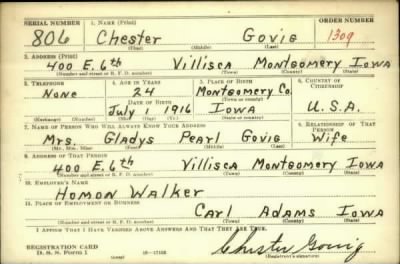 SERIAL NUMBER 1. NAME (Print) ORDER NUMBER
806 Chester Govig 1309
(First) (Middle) (Last)
2. ADDRESS (Print)
400 E. 6th Villisca Montgomery Iowa
(Number and street or R. F. D. number) (Town) (County) (State)
3. TELEPHONE 4. AGE IN YEARS 5. PLACE OF BIRTH 6. COUNTRY OF CITIZENSHIP
None 24 Montgomery Co.
DATE OF BIRTH (Town or county)
July 1 1916 Iowa U.S.A.
(Exchange) (Number) (Mo.) (Day) (Yr.) (State or country)
7. NAME OF PERSON WHO WILL ALWAYS KNOW YOUR ADDRESS 8. RELATIONSHIP OF THAT PERSON
Mrs. Gladys Pearl Govig Wife
(Mr., Mrs., Miss) (First) (Middle) (Last)
9. ADDRESS OF THAT PERSON
400 E. 6th Villisca Montgomery Iowa
(Number and street or R. F. D. number) (Town) (County) (State)
10. EMPLOYER'S NAME
Homon Walker
11. PLACE OF EMPLOYMENT OR BUSINESS
Carl Adams Iowa
(Number and street or R. F. D. number) (Town) (County) (State)
I AFFIRM THAT I HAVE VERIFIED ABOVE ANSWERS AND THAT THEY ARE TRUE.
REGISTRATION CARD
D. S. S. Form 1 16—17105 Chester Govig